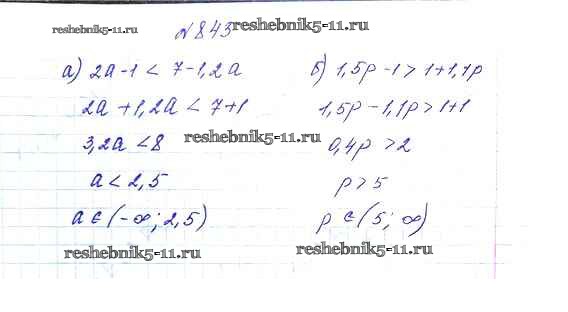 reshebnik5-11.ru
№843
reshebnik5-11.ru
а) 2a-1 < 7-1,2a
2a+1,2a < 7+1
3,2a < 8
a < 2,5
a ∈ (-∞; 2,5)
б) 1,5p-1 > 1+1,1p
1,5p-1,1p > 1+1
0,4p > 2
p > 5
p ∈ (5; ∞)
reshebnik5-11.ru
reshebnik5-11.ru
reshebnik5-11.ru